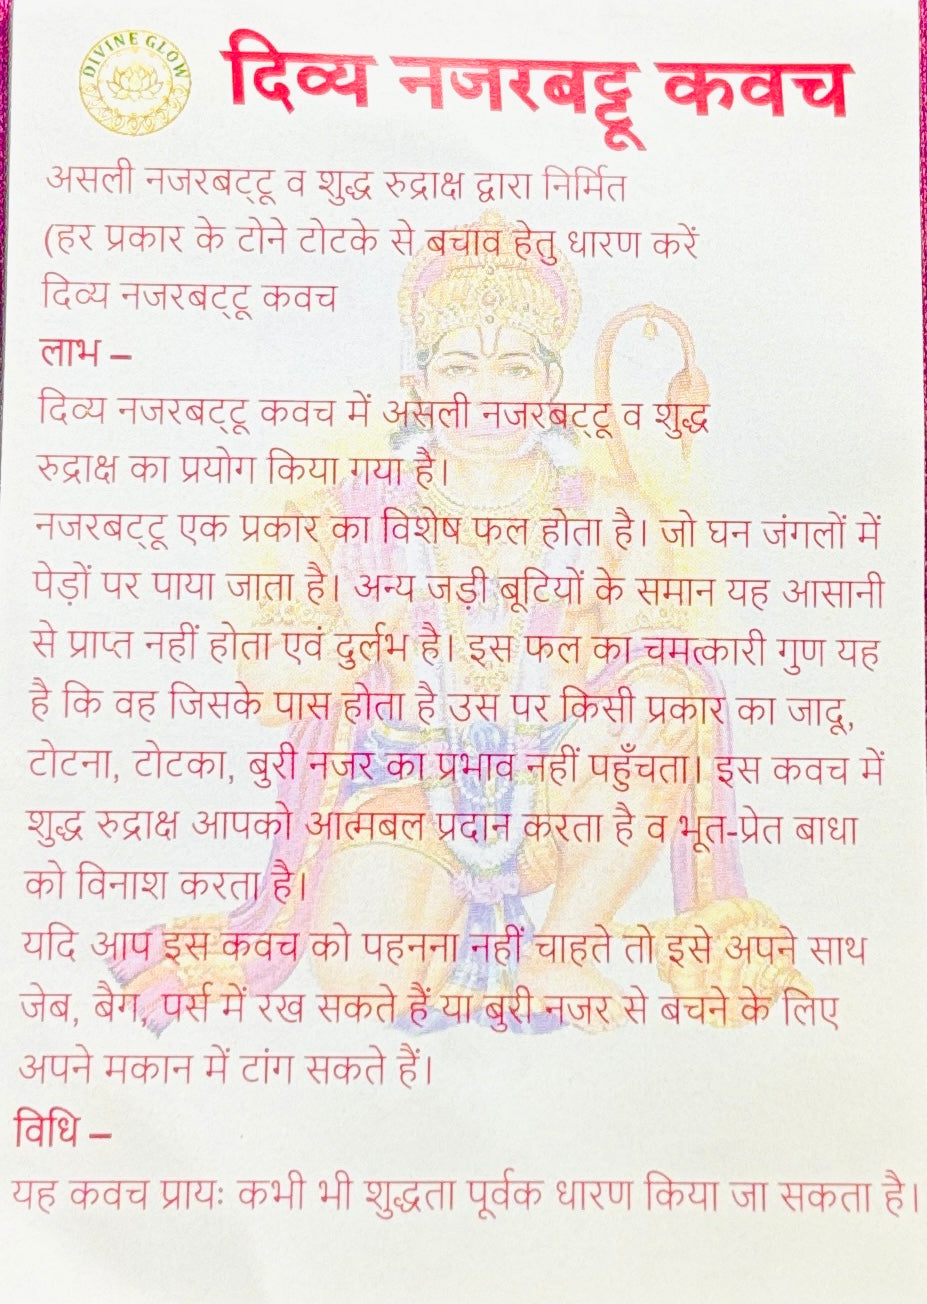 DIVINE GLOW
दिव्य नजरबट्टू कवच
असली नजरबट्‌टू व शुद्ध रुद्राक्ष द्वारा निर्मित
(हर प्रकार के टोने टोटके से बचाव हेतु धारण करें
दिव्य नजरबट्‌टू कवच
लाभ –
दिव्य नजरबट्‌टू कवच में असली नजरबट्‌टू व शुद्ध
रुद्राक्ष का प्रयोग किया गया है।
नजरबट्‌टू एक प्रकार का विशेष फल होता है। जो घन जंगलों में
पेड़ों पर पाया जाता है। अन्य जड़ी बूटियों के समान यह आसानी
से प्राप्त नहीं होता एवं दुर्लभ है। इस फल का चमत्कारी गुण यह
है कि वह जिसके पास होता है उस पर किसी प्रकार का जादू,
टोटना, टोटका, बुरी नजर का प्रभाव नहीं पहुँचता। इस कवच में
शुद्ध रुद्राक्ष आपको आत्मबल प्रदान करता है व भूत-प्रेत बाधा
को विनाश करता है।
यदि आप इस कवच को पहनना नहीं चाहते तो इसे अपने साथ
जेब, बैग, पर्स में रख सकते हैं या बुरी नजर से बचने के लिए
अपने मकान में टांग सकते हैं।
विधि –
यह कवच प्रायः कभी भी शुद्धता पूर्वक धारण किया जा सकता है।